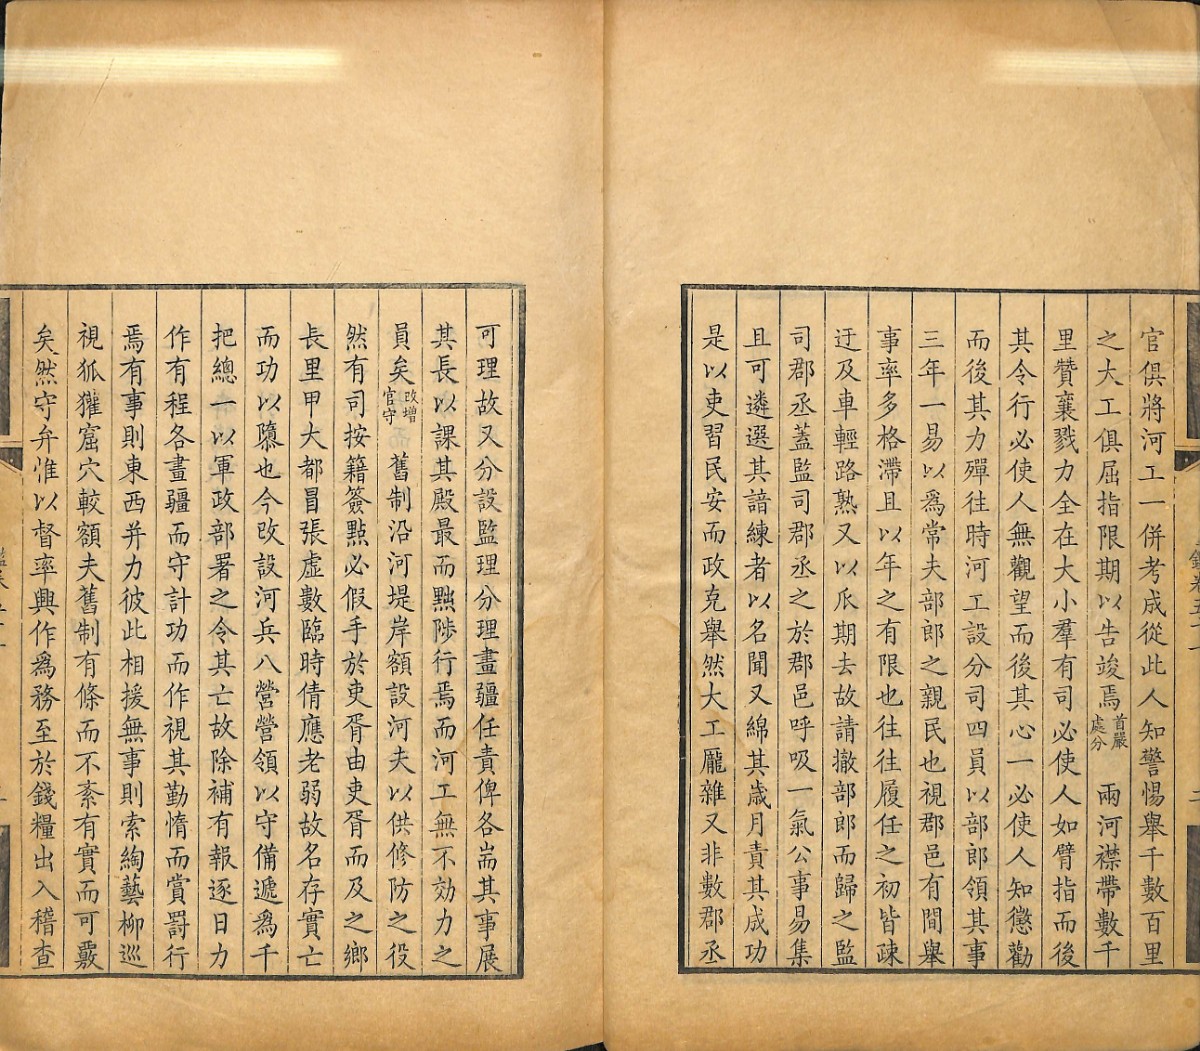 官俱將河工一併考成從此人知警惕舉千數百里
之大工俱屈指限期以告竣焉首嚴處分 兩河襟帶數千
里贊襄戮力全在大小羣有司必使人如臂指而後
其令行必使人無觀望而後其心一必使人知懲勸
而後其力殫往時河工設分司四員以部郎領其事
三年一易以爲常夫部郎之親民也視郡邑有間舉
事率多格滯且以年之有限也往往履任之初皆疎
迂及車輕路熟又以瓜期去故請撤部郎而歸之監
司郡丞蓋監司郡丞之於郡邑呼吸一氣公事易集
且可遴選其諳練者以名聞又綿其歲月責其成功
是以吏習民安而政克舉然大工龐雜又非數郡丞
可理故又分設監理分理畫疆任責俾各耑其事展
其長以課其殿最而黜陟行焉而河工無不効力之
員矣改增官守 舊制沿河堤岸額設河夫以供修防之役
然有司按籍簽點必假手於吏胥由吏胥而及之鄉
長里甲大都冒張虛數臨時倩應老弱故名存實亡
而功以隳也今改設河兵八營營領以守備遞爲千
把總一以軍政部署之令其亡故除補有報逐日力
作有程各畫疆而守計功而作視其勤惰而賞罰行
焉有事則東西并力彼此相援無事則索綯藝柳巡
視狐獾窟穴較額夫舊制有條而不紊有實而可覈
矣然守弁惟以督率興作爲務至於錢糧出入稽查